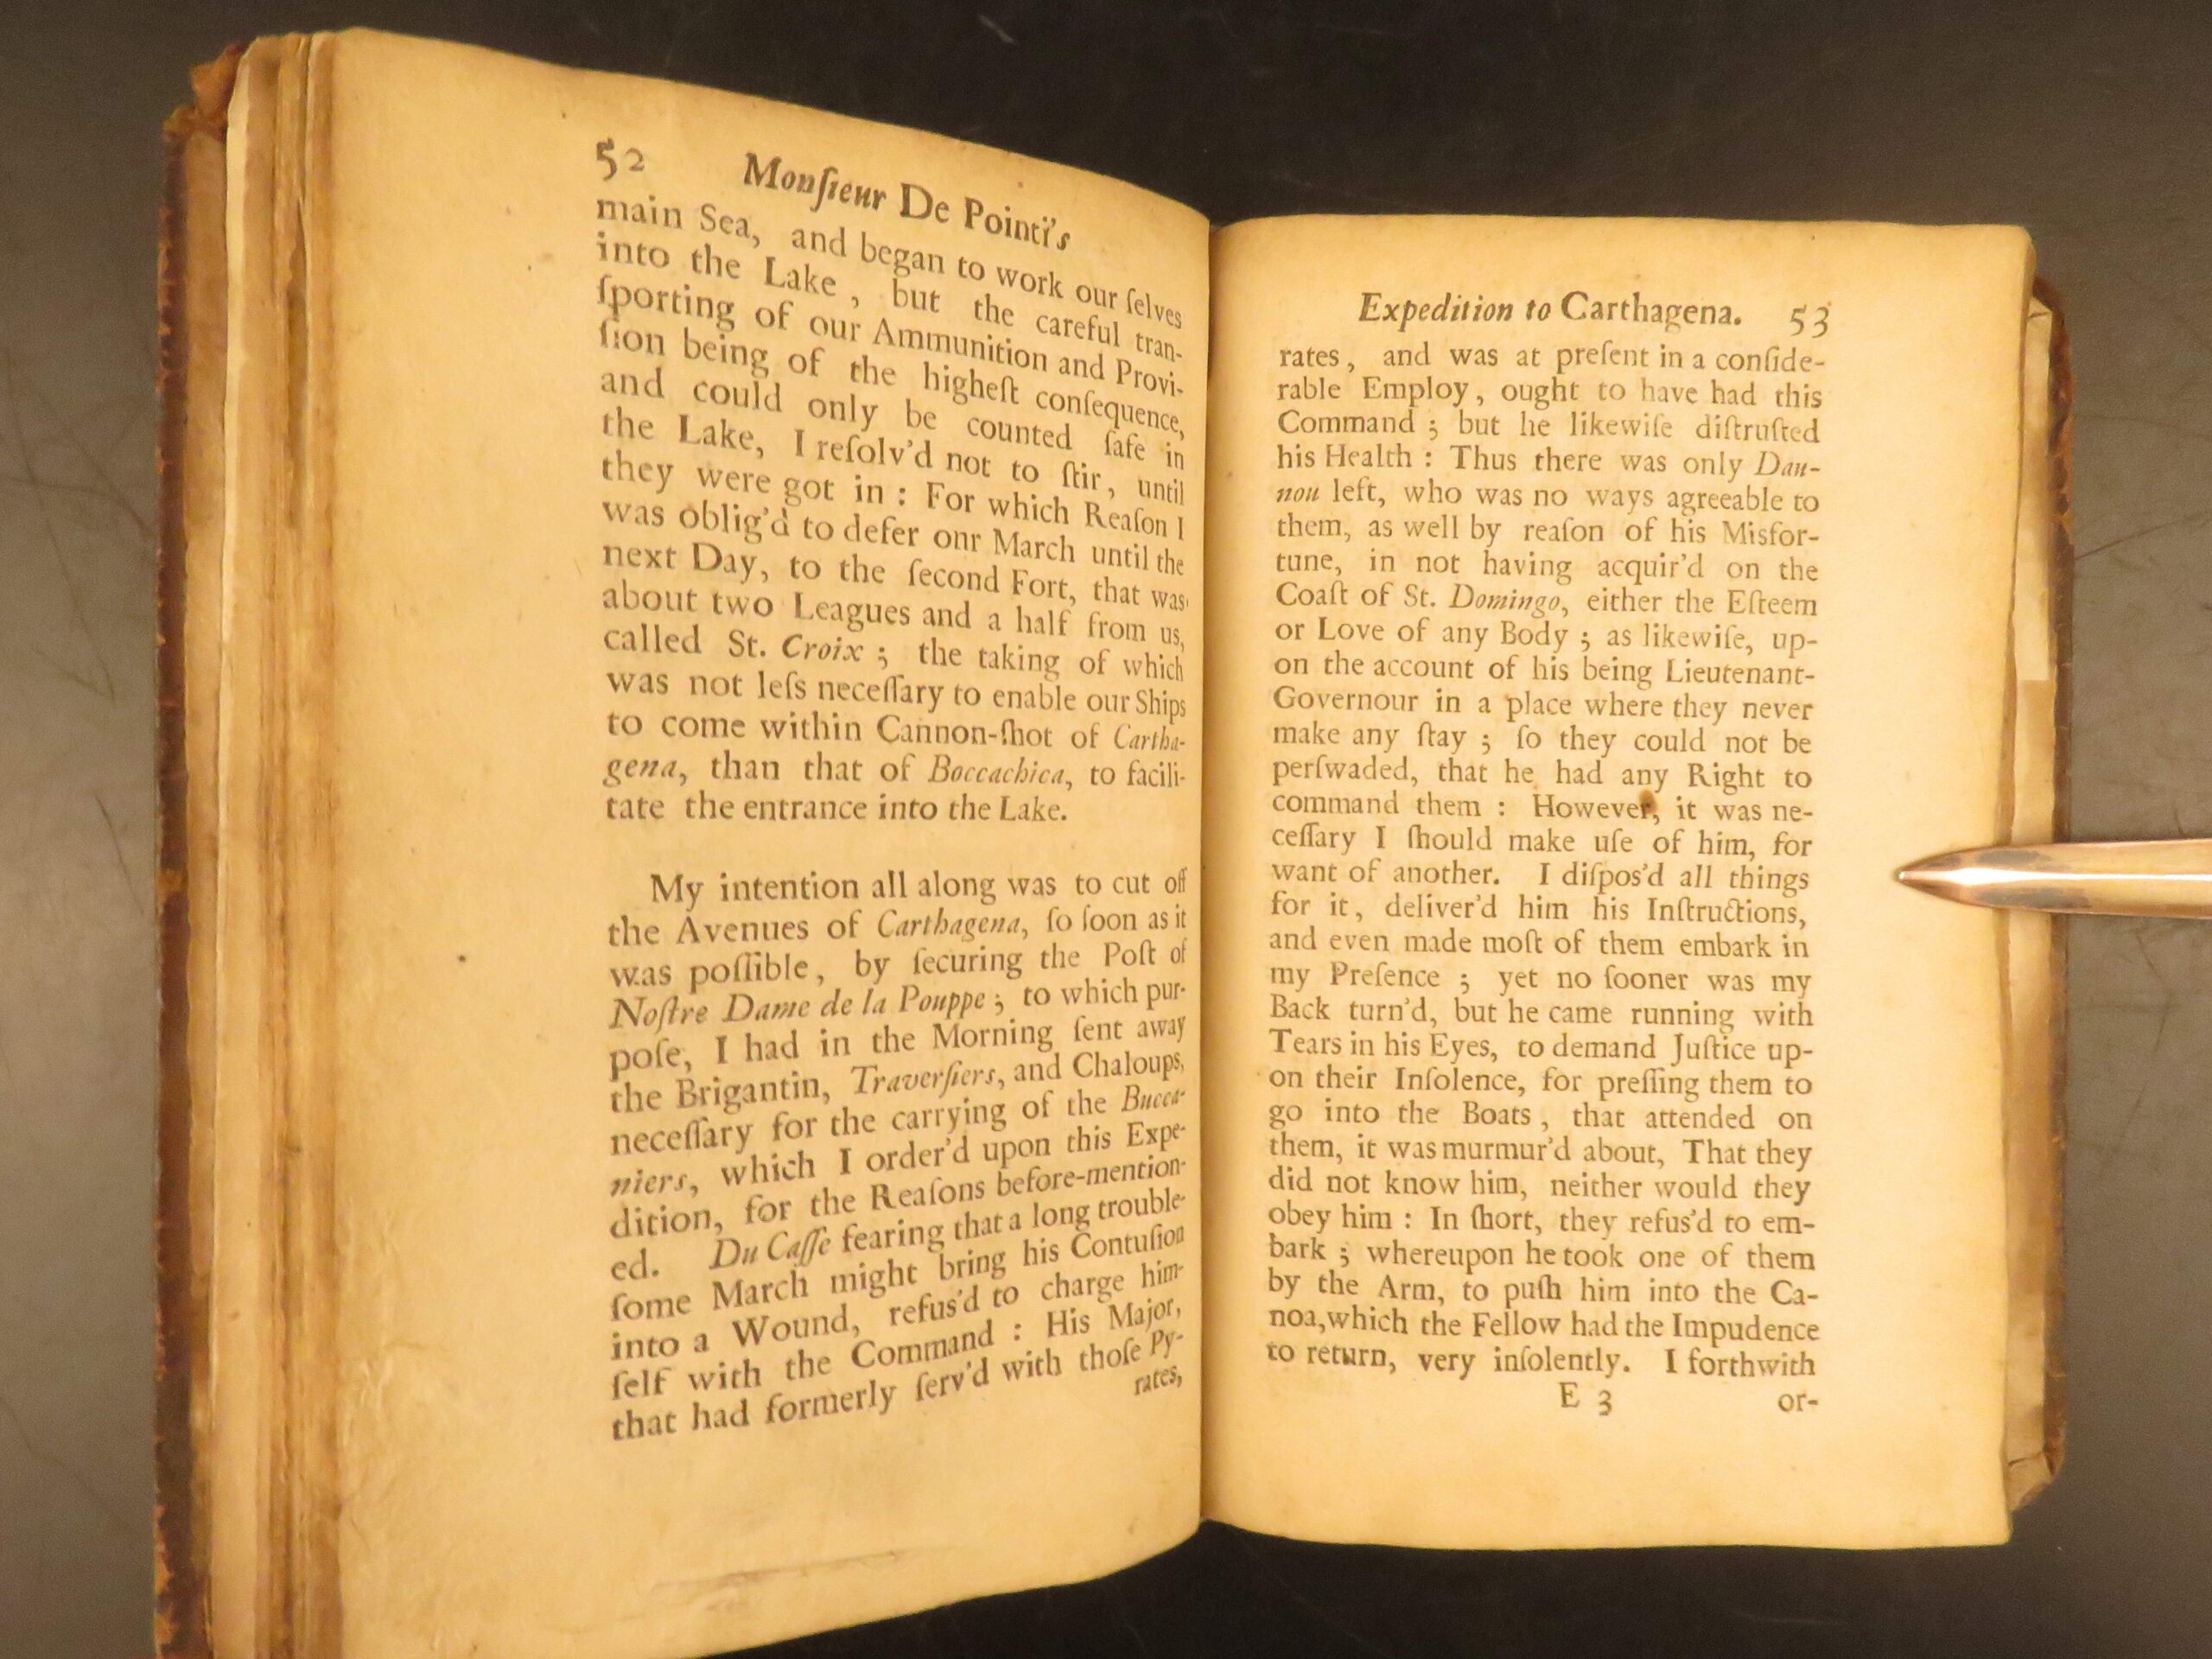 52 Monſieur De Pointi's
main Sea, and began to work our ſelves
into the Lake, but the careful tran-
ſporting of our Ammunition and Provi-
ſion being of the higheſt conſequence,
and could only be counted ſafe in
the Lake, I reſolv'd not to ſtir, until
they were got in : For which Reaſon I
was oblig'd to defer onr March until the
next Day, to the ſecond Fort, that was
about two Leagues and a half from us,
called St. Croix ; the taking of which
was not leſs neceſſary to enable our Ships
to come within Cannon-ſhot of Cartha-
gena, than that of Boccachica, to facili-
tate the entrance into the Lake.
My intention all along was to cut off
the Avenues of Carthagena, ſo ſoon as it
was poſſible, by ſecuring the Poſt of
Noſtre Dame de la Pouppe ; to which pur-
poſe, I had in the Morning ſent away
the Brigantin, Traverſiers, and Chaloups,
neceſſary for the carrying of the Bucca-
niers, which I order'd upon this Expe-
dition, for the Reaſons before-mention-
ed. Du Caſſe fearing that a long trouble-
ſome March might bring his Contuſion
into a Wound, refus'd to charge him-
ſelf with the Command : His Major,
that had formerly ſerv'd with thoſe Py-
rates,
Expedition to Carthagena. 53
rates, and was at preſent in a conſide-
rable Employ, ought to have had this
Command ; but he likewiſe diſtruſted
his Health : Thus there was only Dau-
nou left, who was no ways agreeable to
them, as well by reaſon of his Misfor-
tune, in not having acquir'd on the
Coaſt of St. Domingo, either the Eſteem
or Love of any Body ; as likewiſe, up-
on the account of his being Lieutenant-
Governour in a place where they never
make any ſtay ; ſo they could not be
perſwaded, that he had any Right to
command them : However, it was ne-
ceſſary I ſhould make uſe of him, for
want of another. I diſpos'd all things
for it, deliver'd him his Inſtructions,
and even made moſt of them embark in
my Preſence ; yet no ſooner was my
Back turn'd, but he came running with
Tears in his Eyes, to demand Juſtice up-
on their Inſolence, for preſſing them to
go into the Boats, that attended on
them, it was murmur'd about, That they
did not know him, neither would they
obey him : In ſhort, they refus'd to em-
bark ; whereupon he took one of them
by the Arm, to puſh him into the Ca-
noa, which the Fellow had the Impudence
to return, very inſolently. I forthwith
E 3 or-